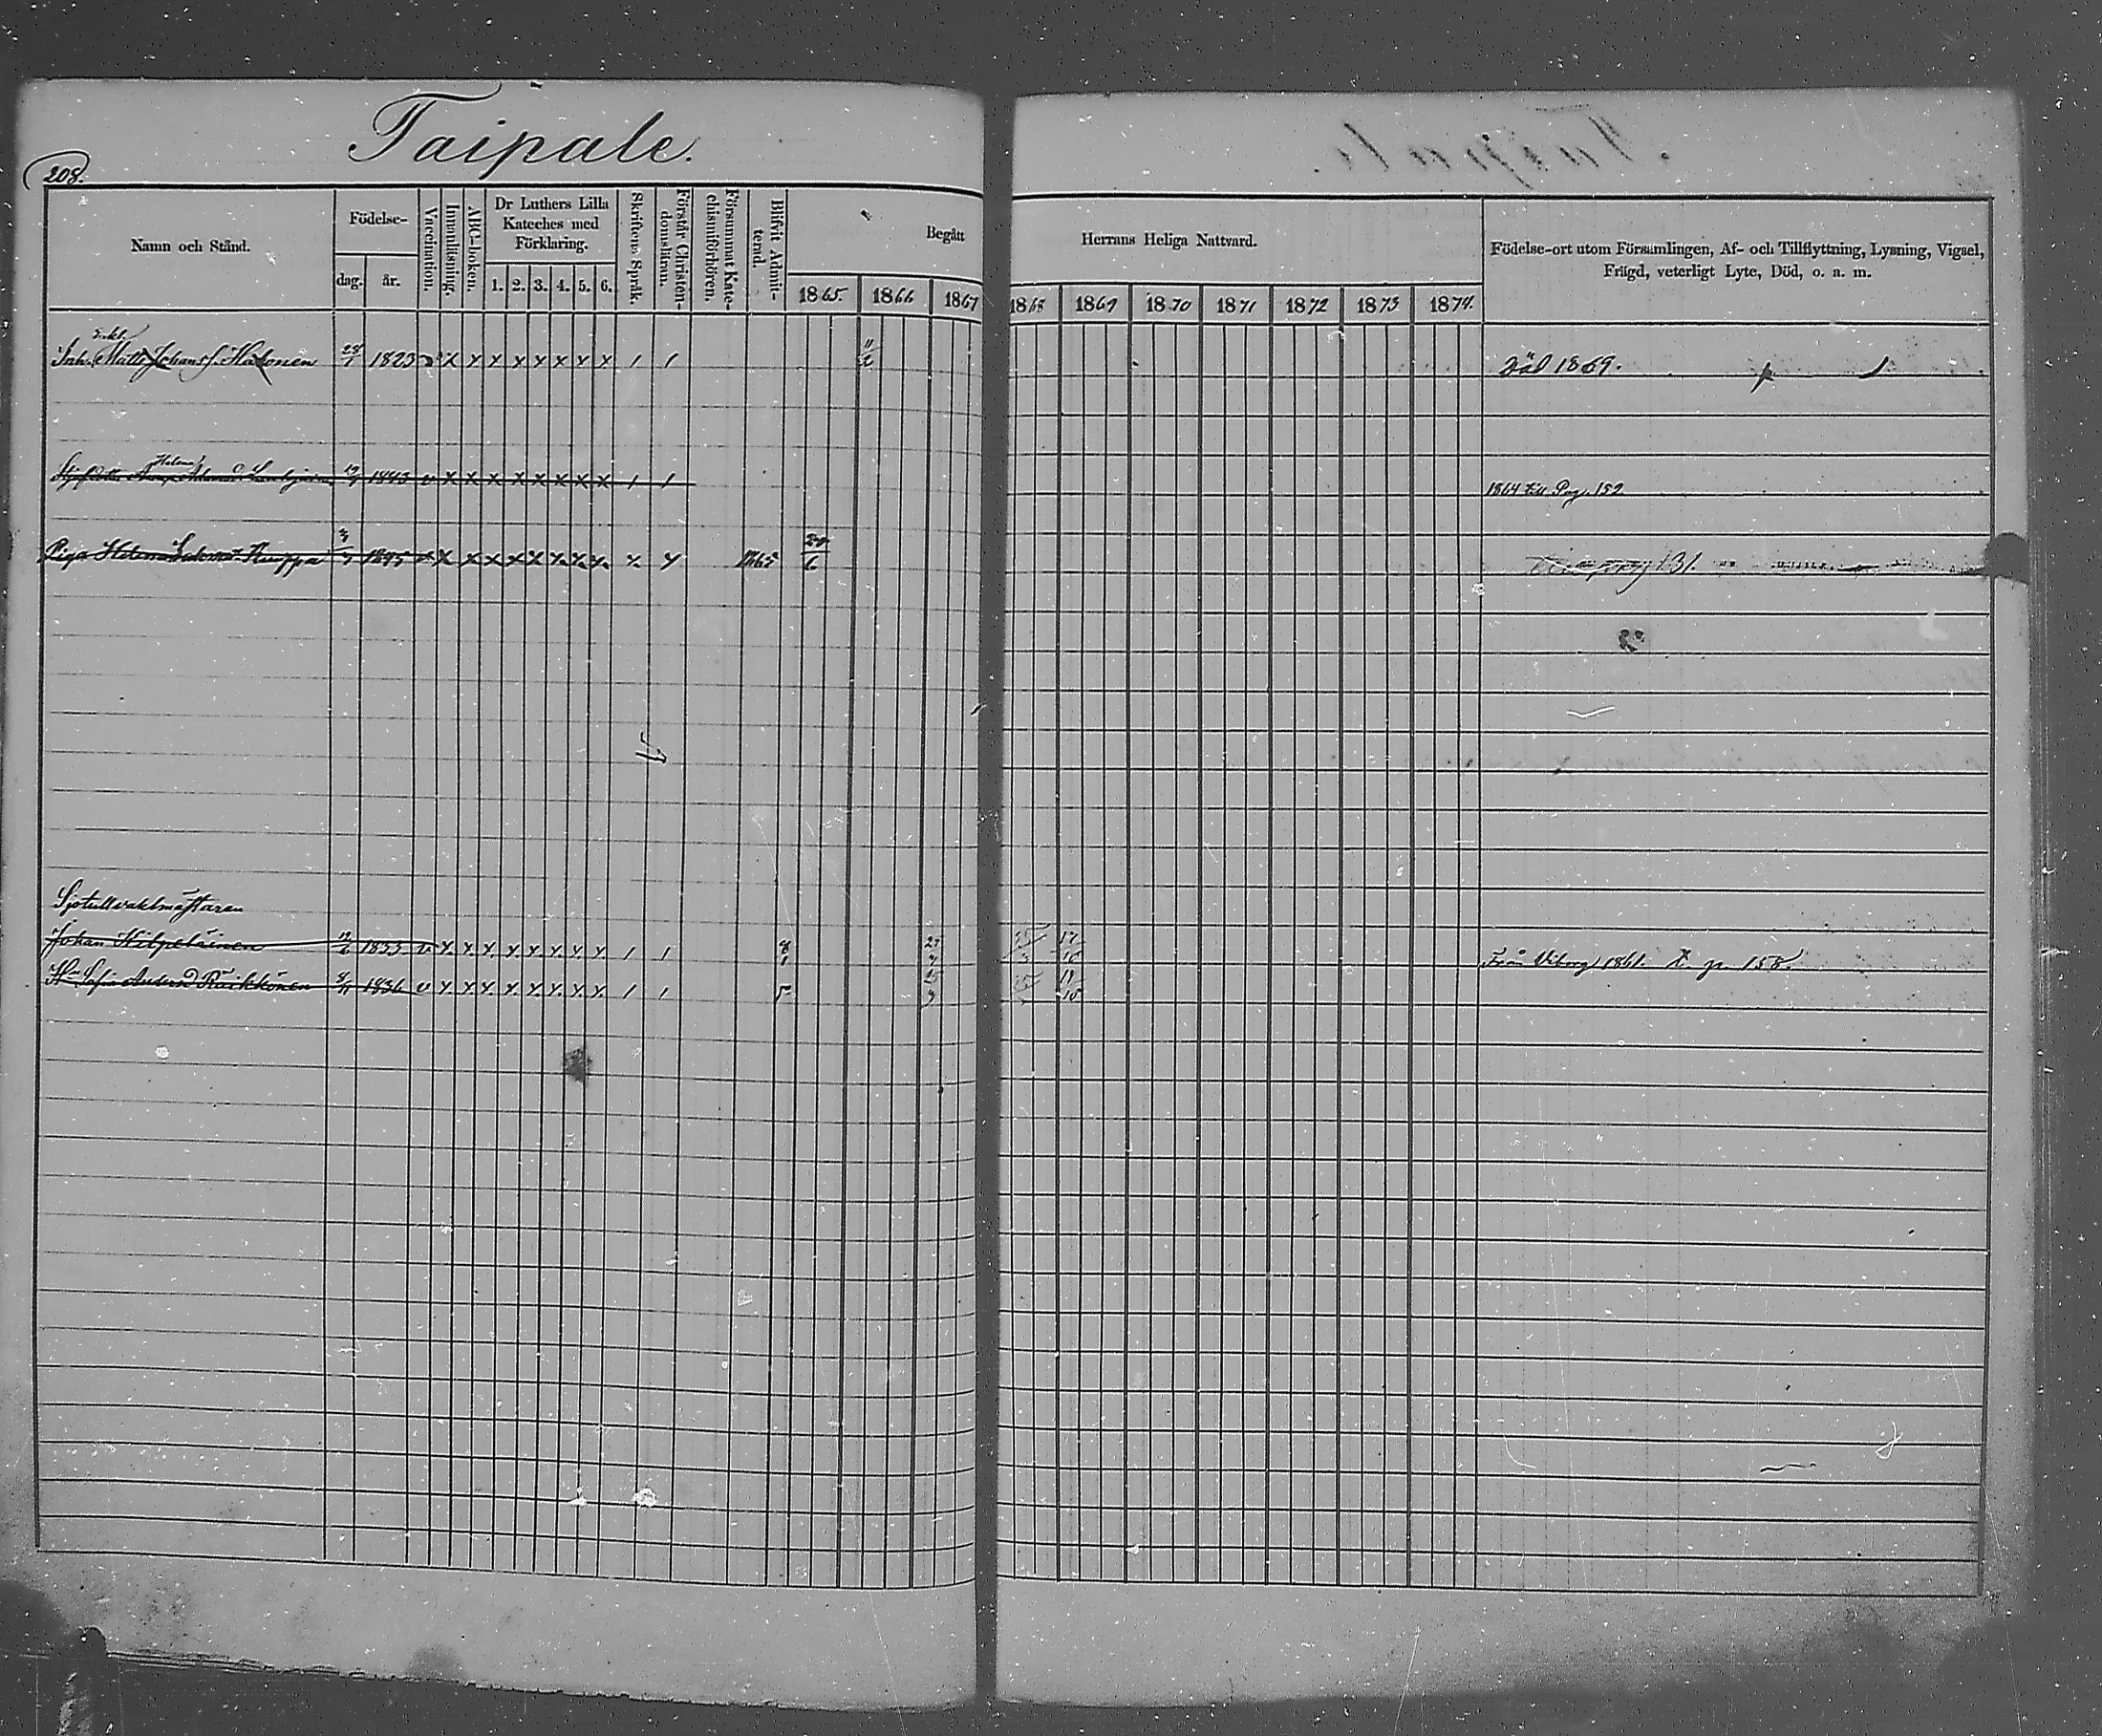 Taipale.
208.
Namn och Stånd.
Födelse-
dag.
år.
Vaccination.
Innanläsning.
ABC-boken.
Dr Luthers Lilla
Kateches med
Förklaring.
1. 2. 3. 4. 5. 6.
Skriftens Språk.
Förstår Christen-
domslärau.
Försummat Kate-
chismiförhören.
Blifvit Admit-
terad.
Begått
Herrans Heliga Nattvard.
1865. 1866 1867 1868 1869 1870 1871 1872 1873 1874.
Födelse-ort utom Församlingen, Af- och Tillflyttning, Lysning, Vigsel,
Frägd, veterligt Lyte, Död, o. a. m.
Enkl.
Inh. Matts Johans s. Hakonen 28/1 1823 v x x x x x x x x 1 1 11/2 Död 1869.
Helena
1843 v x x x x x x x x 1 1 1864 till Pag. 152
Piga Helena 1845 v x x x x x x x x x x 1865 20/6 131.
Sjötullvaktmästaren
Johan Hilpeläinen 12/6 1833 v x x x x x x x x 1 1 8 Från Viborg 1861. T. p. 158.
Hu Sofia Andersd Räikkönen 1836 v x x x x x x x x 1 1 5